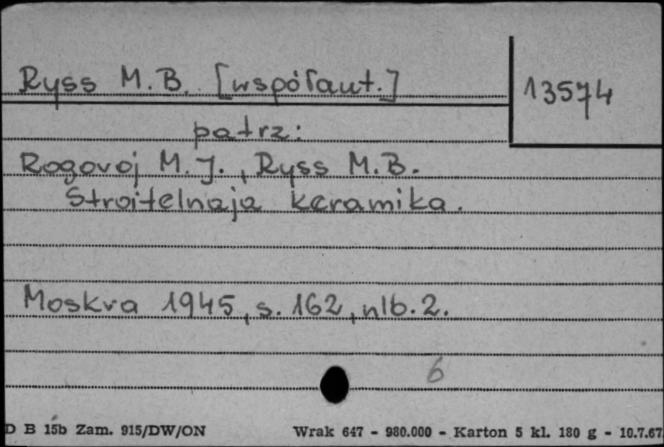 Ryss M.B. [współaut.]
13574
patrz:
Rogovoj M.J., Ryss M.B.
Stroitelnaja keramika.
Moskva 1945, s. 162, nlb. 2.
6
D B 15b Zam. 915/DW/ON Wrak 647 - 980.000 - Karton 5 kl. 180 g - 10.7.67